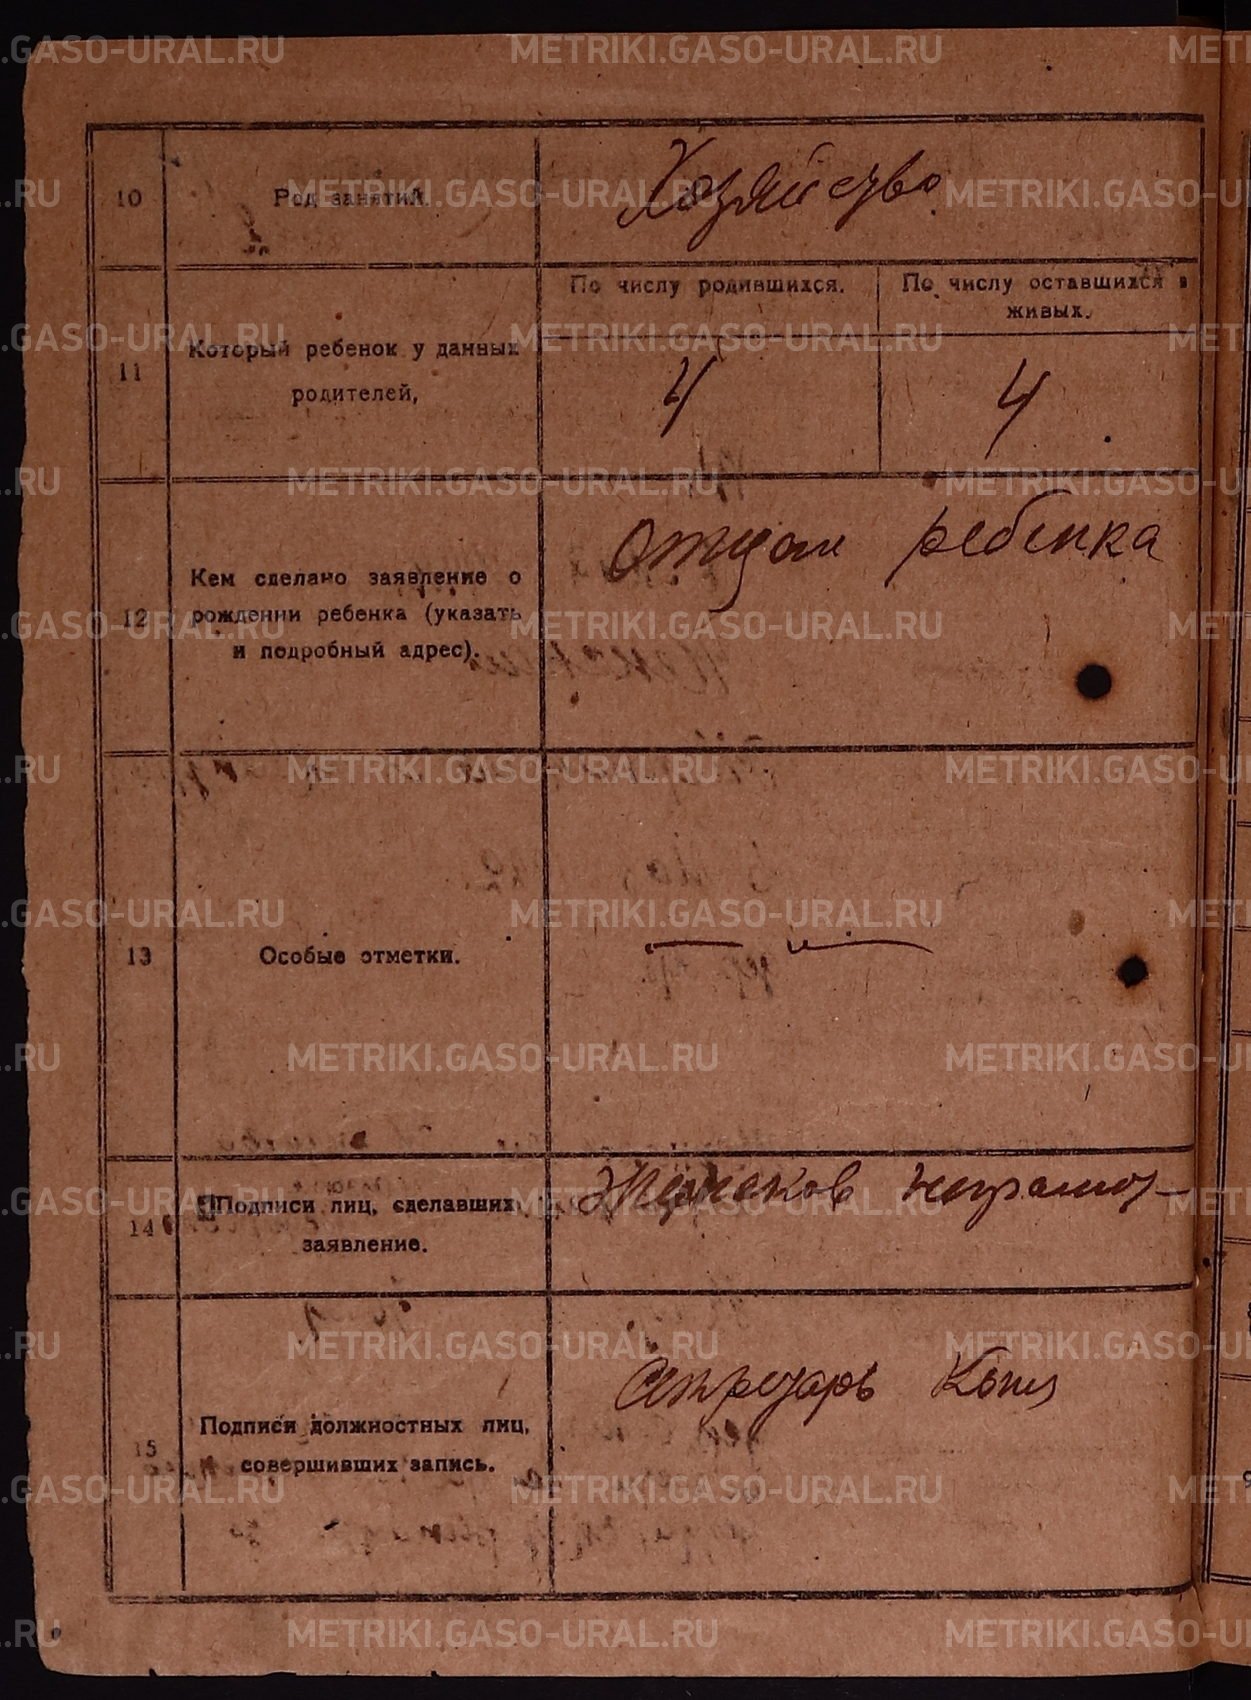 10
Род занятий.
Хозяйство
11
Который ребенок у данных
родителей,
По числу родившихся.
По числу оставшихся в
живых.
4
4
12
Кем сделано заявление о
рождении ребенка (указать
и подробный адрес).
отцом ребенка
13
Особые отметки.
14
Подписи лиц, сделавших
заявление.
неграмот-
15
Подписи должностных лиц,
совершивших запись.
Секретарь
METRIKI.GASO-URAL.RU